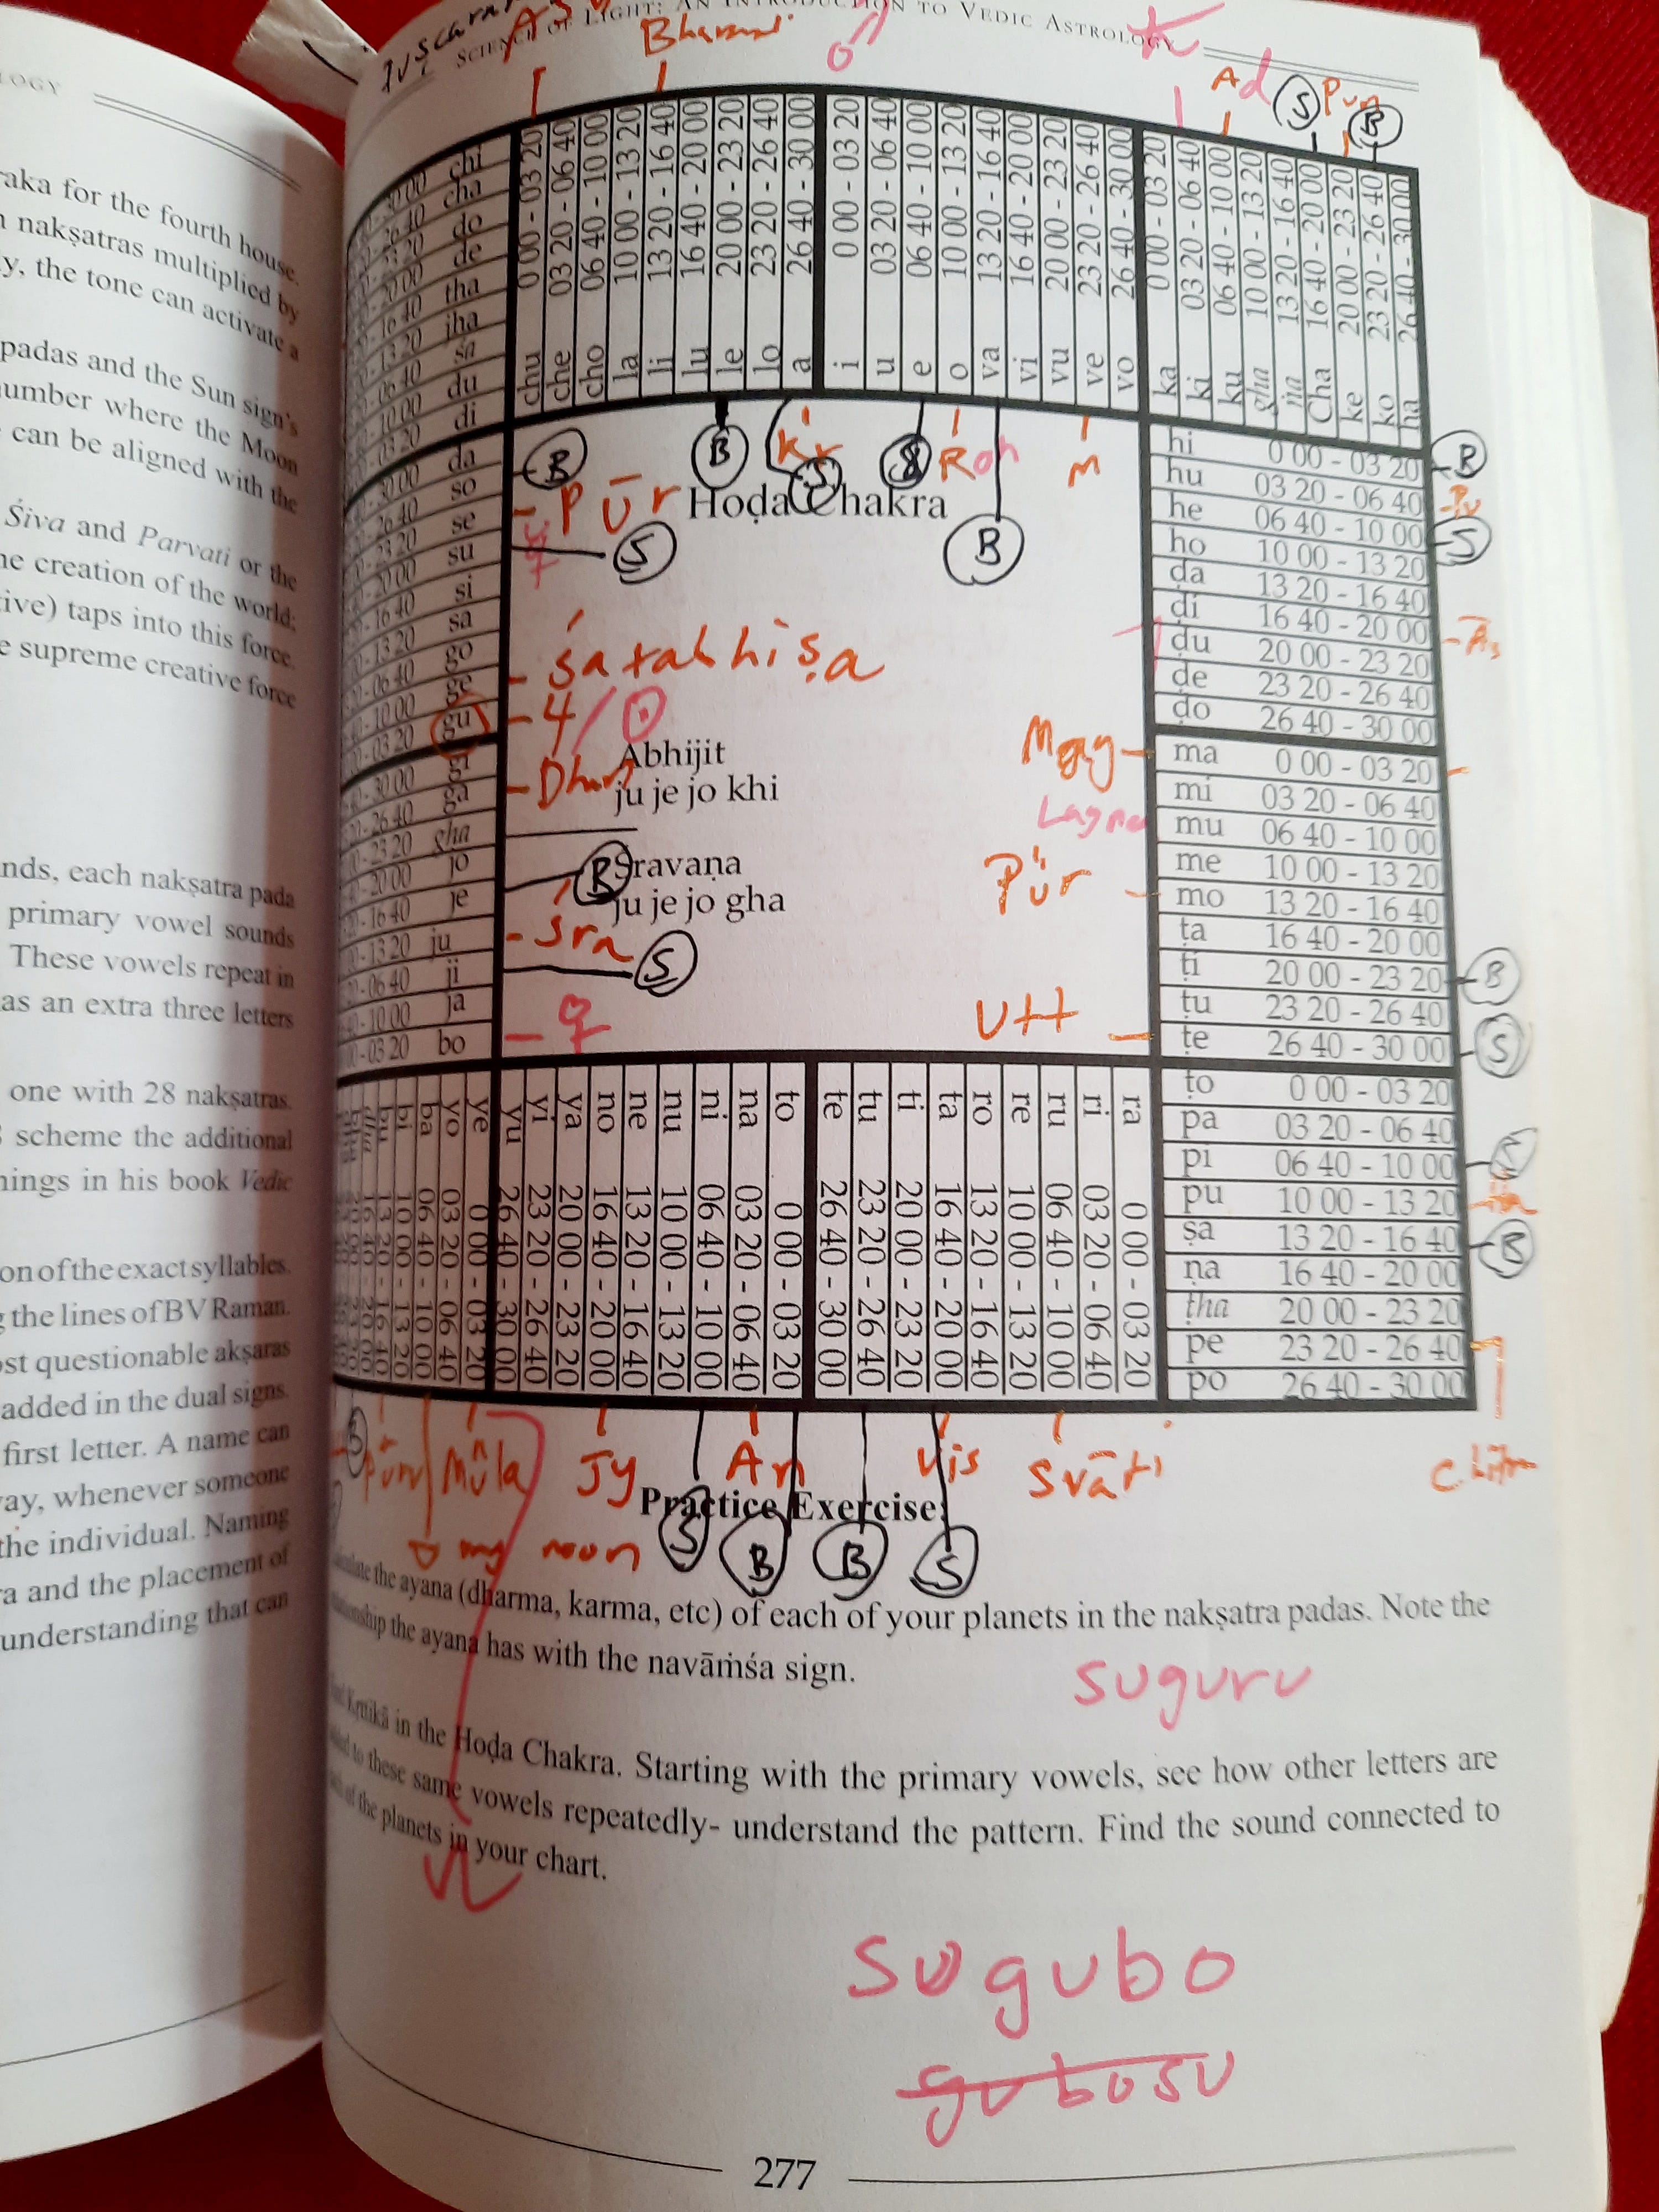 OLOGY
raka for the fourth house.
n nakṣatras multiplied by
y, the tone can activate a
padas and the Sun sign's
number where the Moon
can be aligned with the
Śiva and Parvati or the
he creation of the world;
tive) taps into this force.
e supreme creative force
nds, each nakṣatra pada
primary vowel sounds
These vowels repeat in
as an extra three letters
one with 28 nakṣatras.
scheme the additional
nings in his book Vedic
on of the exact syllables.
g the lines of BV Raman.
ost questionable akṣaras
added in the dual signs.
first letter. A name can
ay, whenever someone
the individual. Naming
ra and the placement of
understanding that can
SCIENCE OF LIGHT: AN INTRODUCTION TO VEDIC ASTROLOGY
Bharani
♂
Ad
S
Pun
B
chi
cha
do
de
tha
jha
śa
du
di
chu 0 00 - 03 20
che 03 20 - 06 40
cho 06 40 - 10 00
la 10 00 - 13 20
li 13 20 - 16 40
lu 16 40 - 20 00
le 20 00 - 23 20
lo 23 20 - 26 40
a 26 40 - 30 00
i 0 00 - 03 20
u 03 20 - 06 40
e 06 40 - 10 00
o 10 00 - 13 20
va 13 20 - 16 40
vi 16 40 - 20 00
vu 20 00 - 23 20
ve 23 20 - 26 40
vo 26 40 - 30 00
ka 0 00 - 03 20
ki 03 20 - 06 40
ku 06 40 - 10 00
gha 10 00 - 13 20
ña 13 20 - 16 40
Cha 16 40 - 20 00
ke 20 00 - 23 20
ko 23 20 - 26 40
ha 26 40 - 30 00
da
so
se
su
si
sa
go
ge
gu
gi
ga
gha
jo
je
ju
ji
ja
bo
B
B
Kr
S
Roh
M
PŪr
S
Hoḍa Chakra
B
Śatabhiṣa
4/☉
Abhijit
Dhan
ju je jo khi
B
Śravaṇa
ju je jo gha
Śra
S
♀
Mag
Lagna
Pūr
Utt
hi 0 00 - 03 20
hu 03 20 - 06 40
he 06 40 - 10 00
ho 10 00 - 13 20
ḍa 13 20 - 16 40
ḍi 16 40 - 20 00
ḍu 20 00 - 23 20
ḍe 23 20 - 26 40
ḍo 26 40 - 30 00
B
Pu
S
Āś
ma 0 00 - 03 20
mi 03 20 - 06 40
mu 06 40 - 10 00
me 10 00 - 13 20
mo 13 20 - 16 40
ṭa 16 40 - 20 00
ṭi 20 00 - 23 20
ṭu 23 20 - 26 40
ṭe 26 40 - 30 00
B
S
ṭo 0 00 - 03 20
pa 03 20 - 06 40
pi 06 40 - 10 00
pu 10 00 - 13 20
ṣa 13 20 - 16 40
ṇa 16 40 - 20 00
ṭha 20 00 - 23 20
pe 23 20 - 26 40
po 26 40 - 30 00
B
Chitra
ye 0 00 - 03 20
yo 03 20 - 06 40
ba 06 40 - 10 00
bi 10 00 - 13 20
bu 13 20 - 16 40
dha 16 40 - 20 00
yu 26 40 - 30 00
yi 23 20 - 26 40
ya 20 00 - 23 20
no 16 40 - 20 00
ne 13 20 - 16 40
nu 10 00 - 13 20
ni 06 40 - 10 00
na 03 20 - 06 40
to 0 00 - 03 20
te 26 40 - 30 00
tu 23 20 - 26 40
ti 20 00 - 23 20
ta 16 40 - 20 00
ro 13 20 - 16 40
re 10 00 - 13 20
ru 06 40 - 10 00
ri 03 20 - 06 40
ra 0 00 - 03 20
Pūrv Mūla Jy An Vis Svāti
Practice Exercise:
my moon
S B B S
the ayana (dharma, karma, etc) of each of your planets in the nakṣatra padas. Note the
the ayana has with the navāṁśa sign.
suguru
Kṛttikā in the Hoḍa Chakra. Starting with the primary vowels, see how other letters are
to these same vowels repeatedly- understand the pattern. Find the sound connected to
of the planets in your chart.
sugubo
gubosu
277